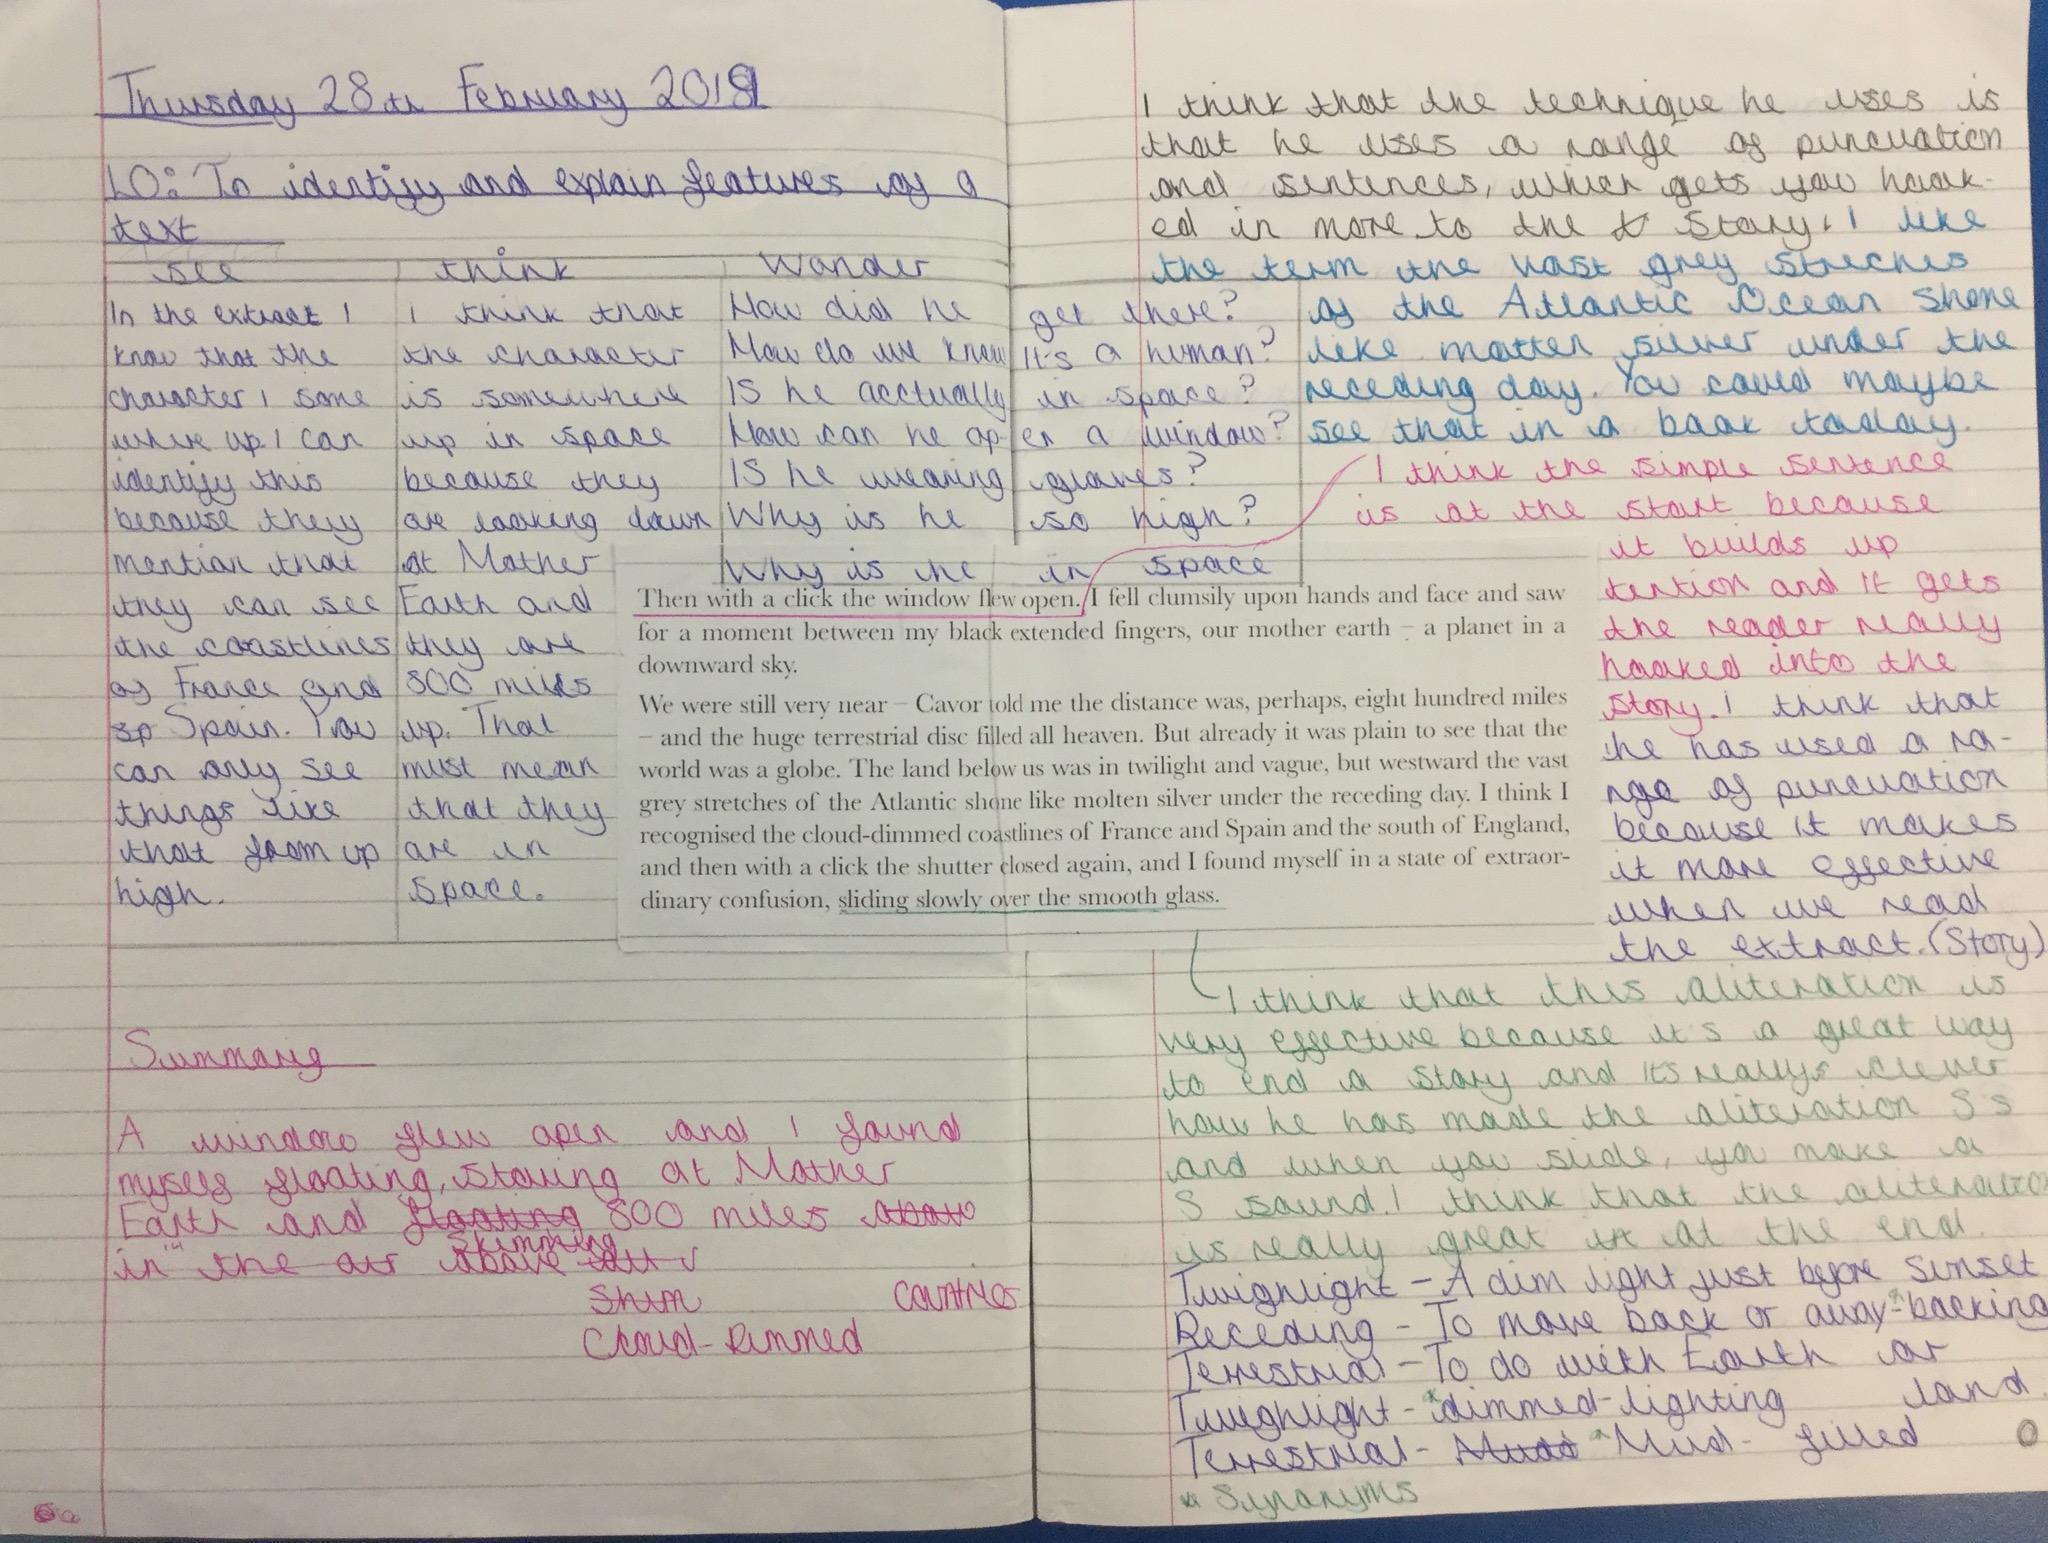 Thursday 28th February 2019
LO: To identify and explain features of a
text
see
In the extract I
know that the
character, some
where up. I can
identify this
because they
mention that
they can see
the coastlines
of France and
sp Spain. You
can only see
things like
that from up
high.
think
I think that
the character
is somewhere
up in space
because they
are looking down
at Mother
Earth and
they are
800 miles
up. That
must mean
that they
are in
space.
Wonder
How did he get there?
How do we know it's a human?
Is he acctually in space?
How can he open a window?
Is he wearing gloves?
Why is he so high?
Why is he in space
Then with a click the window flew open. I fell clumsily upon hands and face and saw
for a moment between my black extended fingers, our mother earth – a planet in a
downward sky.
We were still very near – Cavor told me the distance was, perhaps, eight hundred miles
– and the huge terrestrial disc filled all heaven. But already it was plain to see that the
world was a globe. The land below us was in twilight and vague, but westward the vast
grey stretches of the Atlantic shone like molten silver under the receding day. I think I
recognised the cloud-dimmed coastlines of France and Spain and the south of England,
and then with a click the shutter closed again, and I found myself in a state of extraor-
dinary confusion, sliding slowly over the smooth glass.
Summary
A window flew open and I found
myself floating, staring at Mother
Earth and floating 800 miles
skimming
in the air above
Shim countries
Cloud-Dimmed
I think that the technique he uses is
that he uses a range of puncuation
and sentences, which gets you hook-
ed in more to the story. I like
the term the vast grey streches
of the Atlantic Ocean shone
like matten silver under the
receding day. You could maybe
see that in a book today.
I think the simple sentence
is at the start because
it builds up
tention and it gets
the reader really
hooked into the
story. I think that
he has used a ra-
nge of puncuation
because it makes
it more effective
when we read
the extract. (Story)
I think that this aliteration is
very effective because it's a great way
to end a story and its really clever
how he has made the aliteration S s
and when you slide, you make a
S sound. I think that the aliteration
is really great at the end.
Twighlight - A dim light just before sunset
Receding - To move back or away *-backing
Terrestrial - To do with Earth or
land.
Twighlight - *dimmed-lighting
Terrestrial - *Mud- filled
* Synonyms